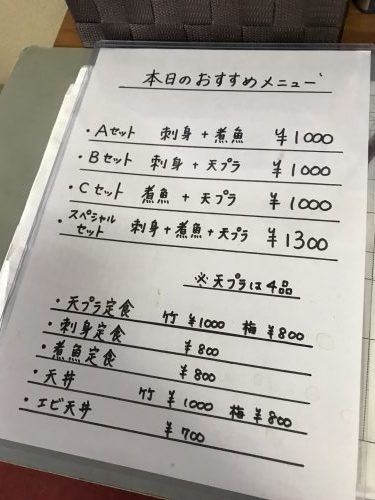 本日のおすすめメニュー
・Aセット 刺身+煮魚 ¥1000
・Bセット 刺身+天プラ ¥1000
・Cセット 煮魚+天プラ ¥1000
・スペシャルセット 刺身+煮魚+天プラ ¥1300
※天プラは4品
・天プラ定食 竹 ¥1000 梅 ¥800
・刺身定食 ¥800
・煮魚定食 ¥800
・天丼 竹 ¥1000 梅 ¥800
・エビ天丼 ¥700